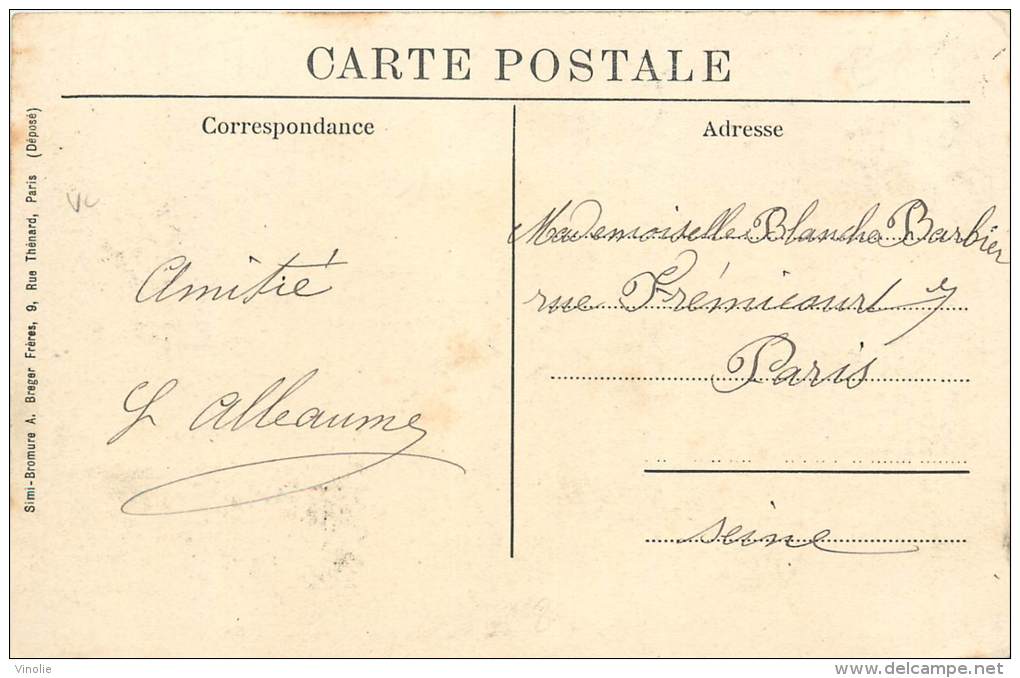 CARTE POSTALE
Correspondance
Amitié
L Alleaume
Adresse
Mademoiselle Blanche Barbier
rue Frémicourt 7
Paris
Seine
Simi-Bromure A. Breger Frères, 9, Rue Thénard, Paris (Déposé)
Vinolie
delcampe.net